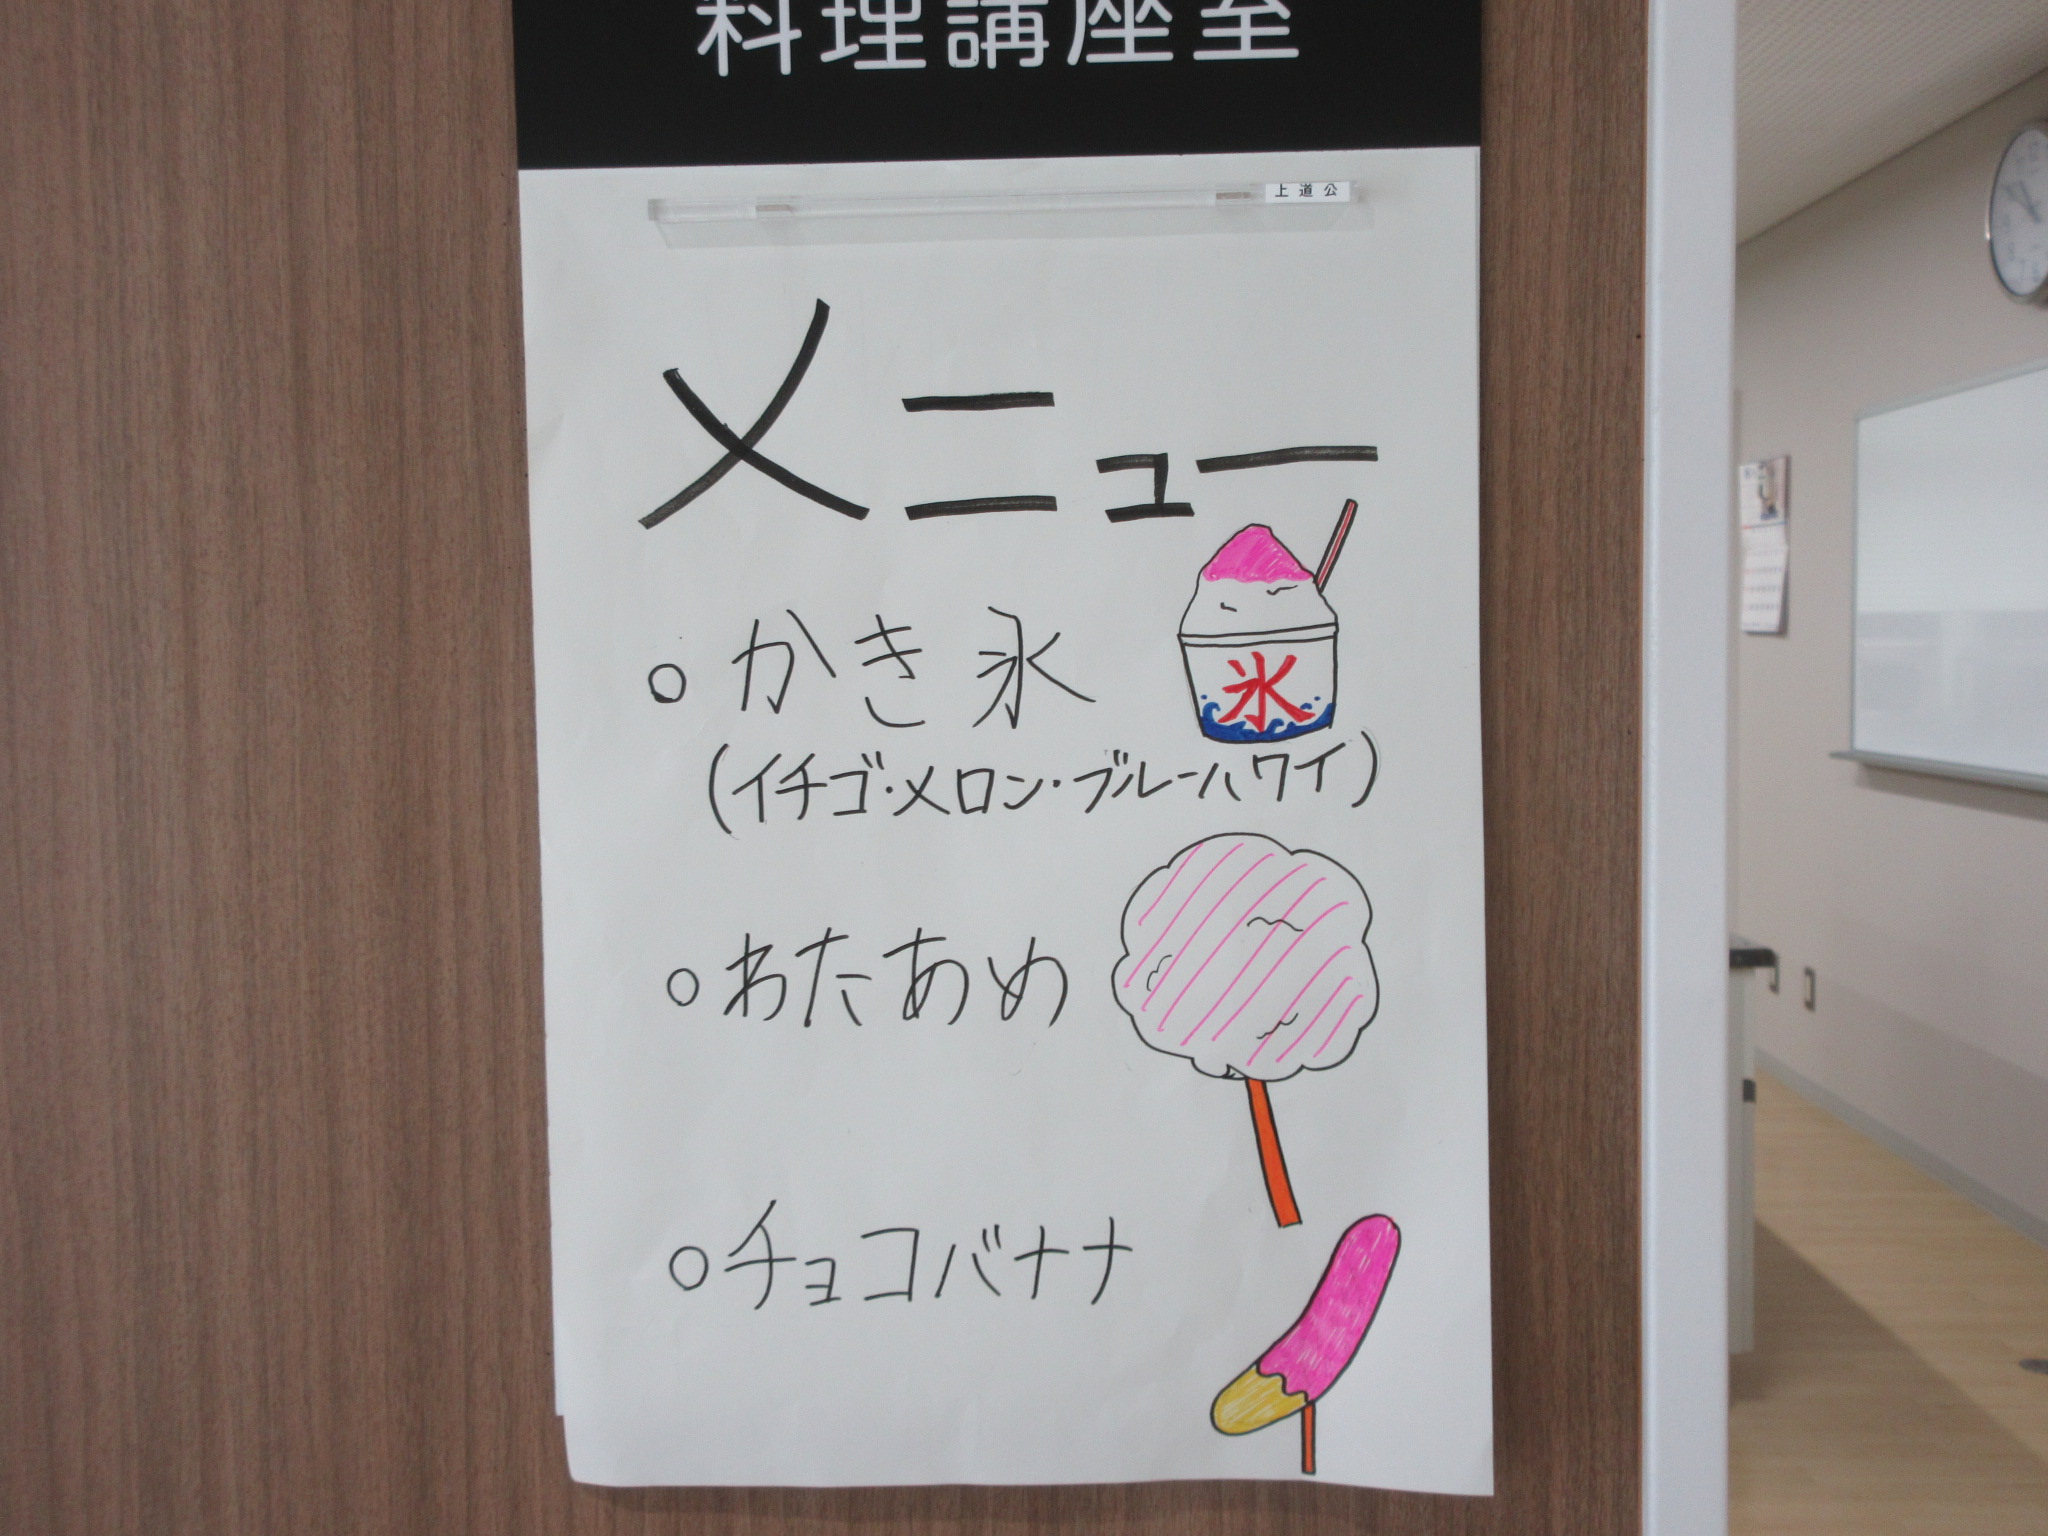 料理講座室
上道公
メニュー
○かき氷
氷
(イチゴ・メロン・ブルーハワイ)
○わたあめ
○チョコバナナ